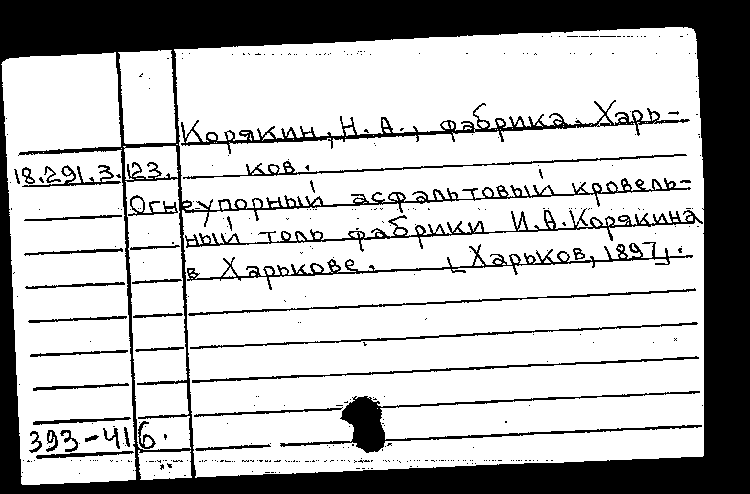 Корякин, Н. А., фабрика. Харь-
18.291.3.123. ков.
Огнеупорный асфальтовый кровель-
ный толь фабрики И. А. Корякина
в Харькове. [Харьков, 1897].
393-416.